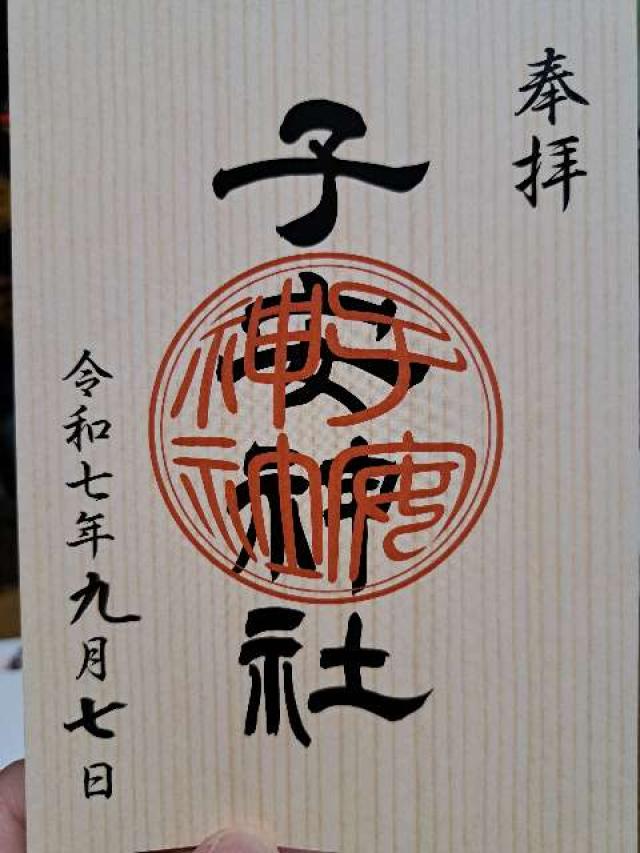 奉拝
子安神社
子安
神社
令和七年九月七日